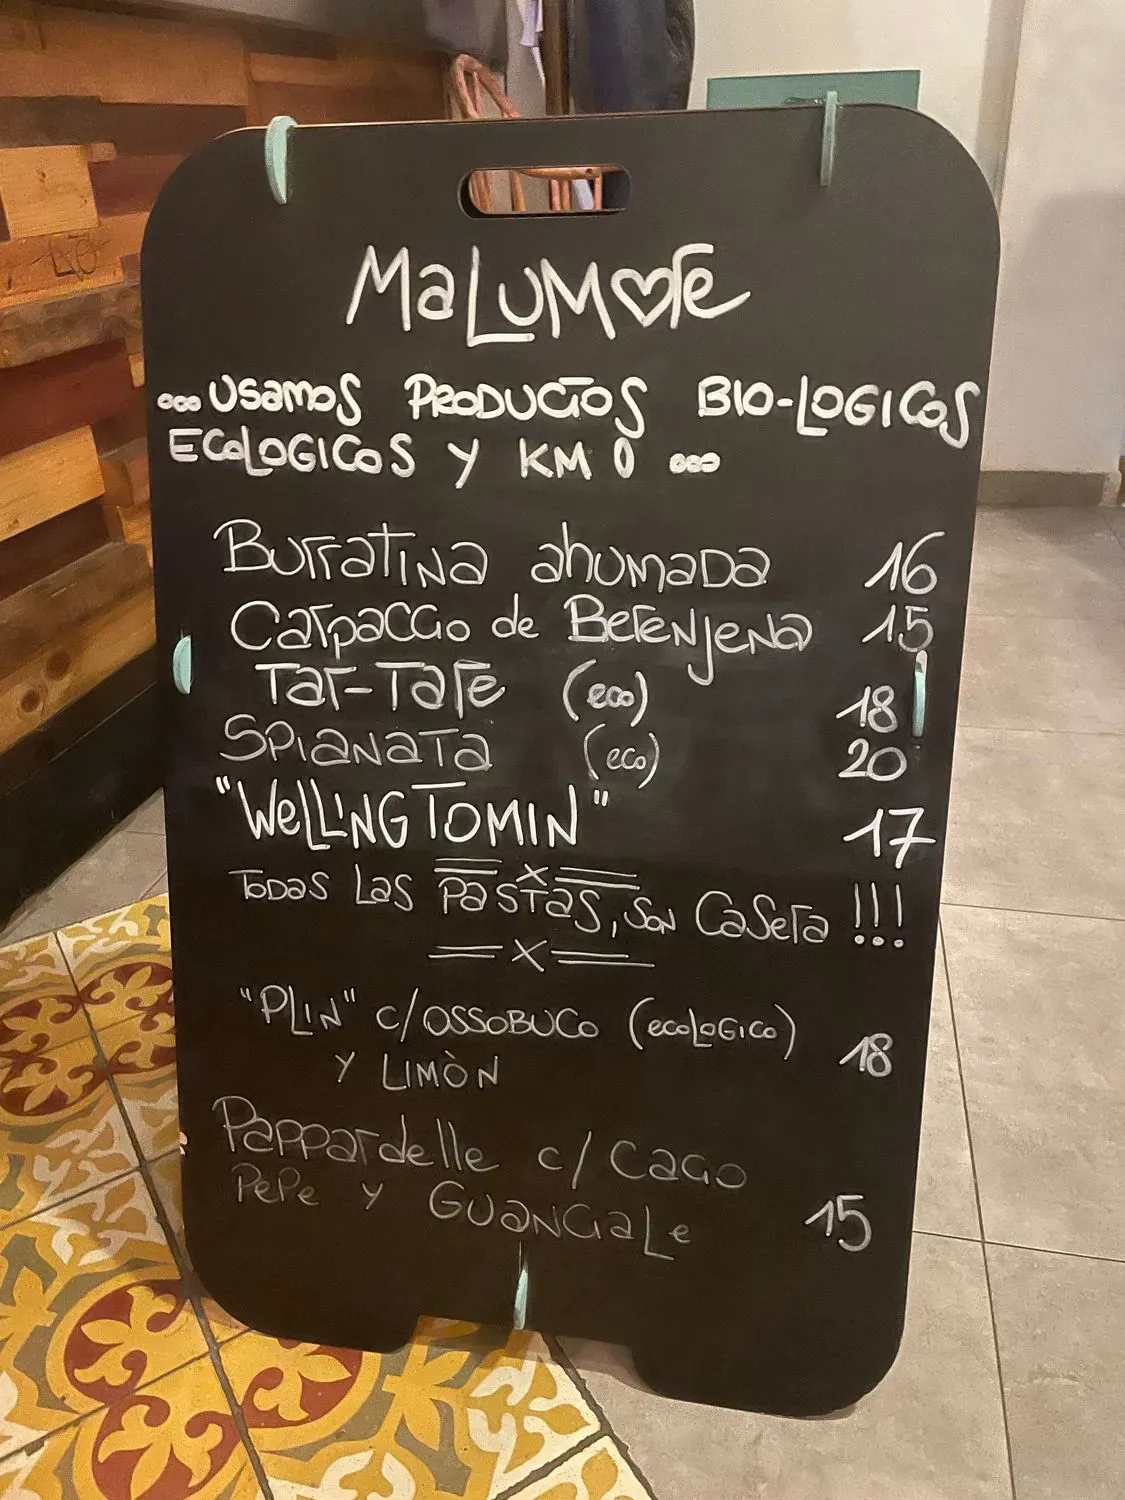 MaLUMORe
...USamos PRODUCTOS BIO-LOGICOS
ECOLOGICOS Y KM 0 ...
Burratina ahumada 16
Carpaccio de Berenjena 15
Tar-Tare (eco) 18
SPIANATA (eco) 20
"WeLLINGTOMIN" 17
TODAS LAS PASTAS, SON CASERA !!!
"PLIN" c/OSSOBUCO (ecologico)
Y LIMÒN 18
Pappardelle c/ CaCIO
PePe Y GUANCIALe 15